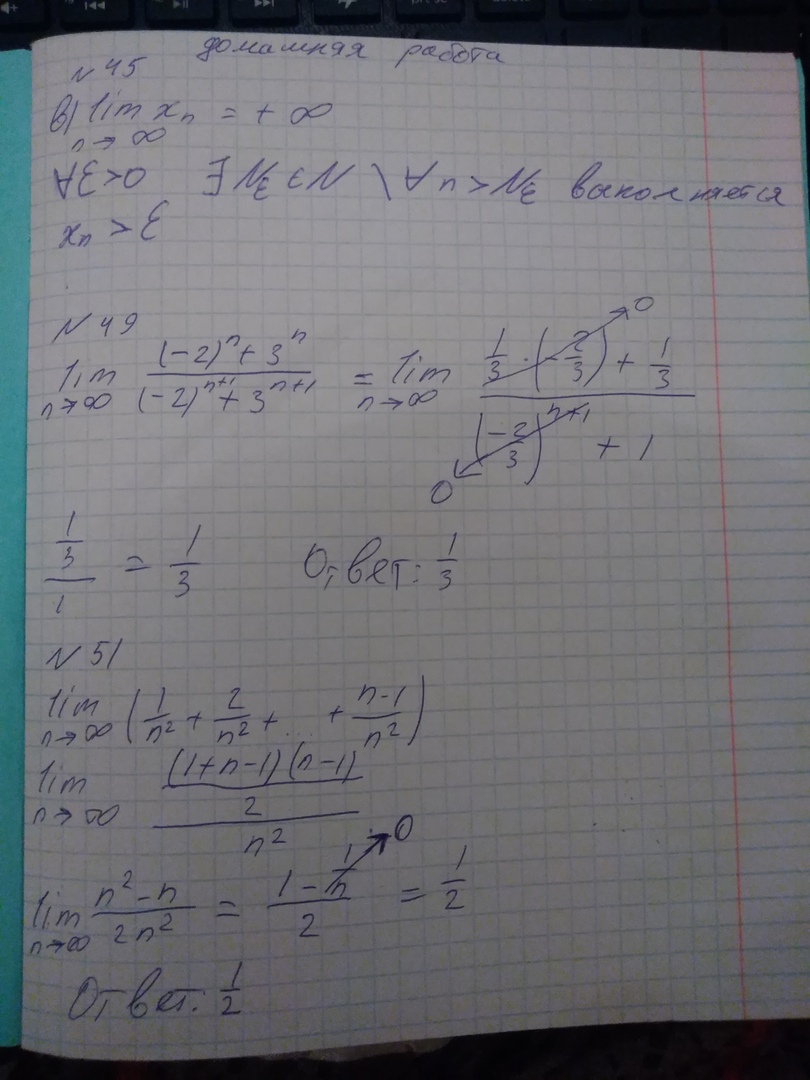 домашняя работа
N 45
в) lim xₙ = + ∞
n → ∞
∀Ɛ>0 ∃ N_Ɛ ∈ N \ ∀n>N_Ɛ выполняется
xₙ > Ɛ
N 49
lim n→∞ ((-2)ⁿ + 3ⁿ)/((-2)ⁿ⁺¹ + 3ⁿ⁺¹) = lim n→∞ (1/3 · (-2/3) + 1/3)/((-2/3)ⁿ⁺¹ + 1) → 0 → 0
(1/3)/1 = 1/3 Ответ: 1/3
N 51
lim n→∞ (1/n² + 2/n² + ... + (n-1)/n²)
lim n→∞ ((1+n-1)(n-1)/2)/n²
lim n→∞ (n² - n)/(2n²) = (1 - 1/n)/2 = 1/2 → 0
Ответ: 1/2